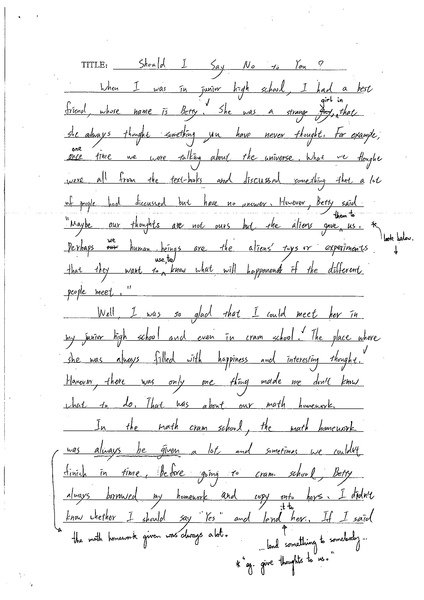 TITLE: Should I Say No to You ?
When I was in junior high school, I had a best
friend, whose name is Betty. She was a strange girl in that
she always thought something you have never thought. For example,
one time we were talking about the universe. What we thought
were all from the text-books and discussed something that a lot
of people had discussed but have no answer. However, Betty said
"Maybe our thoughts are not ours but the aliens gave them to us.
look below.
Perhaps we human beings are the aliens' toys or experiments
that they want to use, to know what will happened if the different
people meet."
Well, I was so glad that I could meet her in
my junior high school and even in cram school. The place where
she was always filled with happiness and interesing thought.
However, there was only one thing made me don't know
what to do. That was about our math homework.
In the math cram school, the math homework
was always be given a lot and sometimes we couldn't
finish in time. Before going to cram school, Betty
always borrowed my homework and copy onto hers. I didn't
know whether I should say "Yes" and lend it to her. If I said
the math homework given was always a lot.
...lend something to somebody...
* "eg. give thoughts to us."